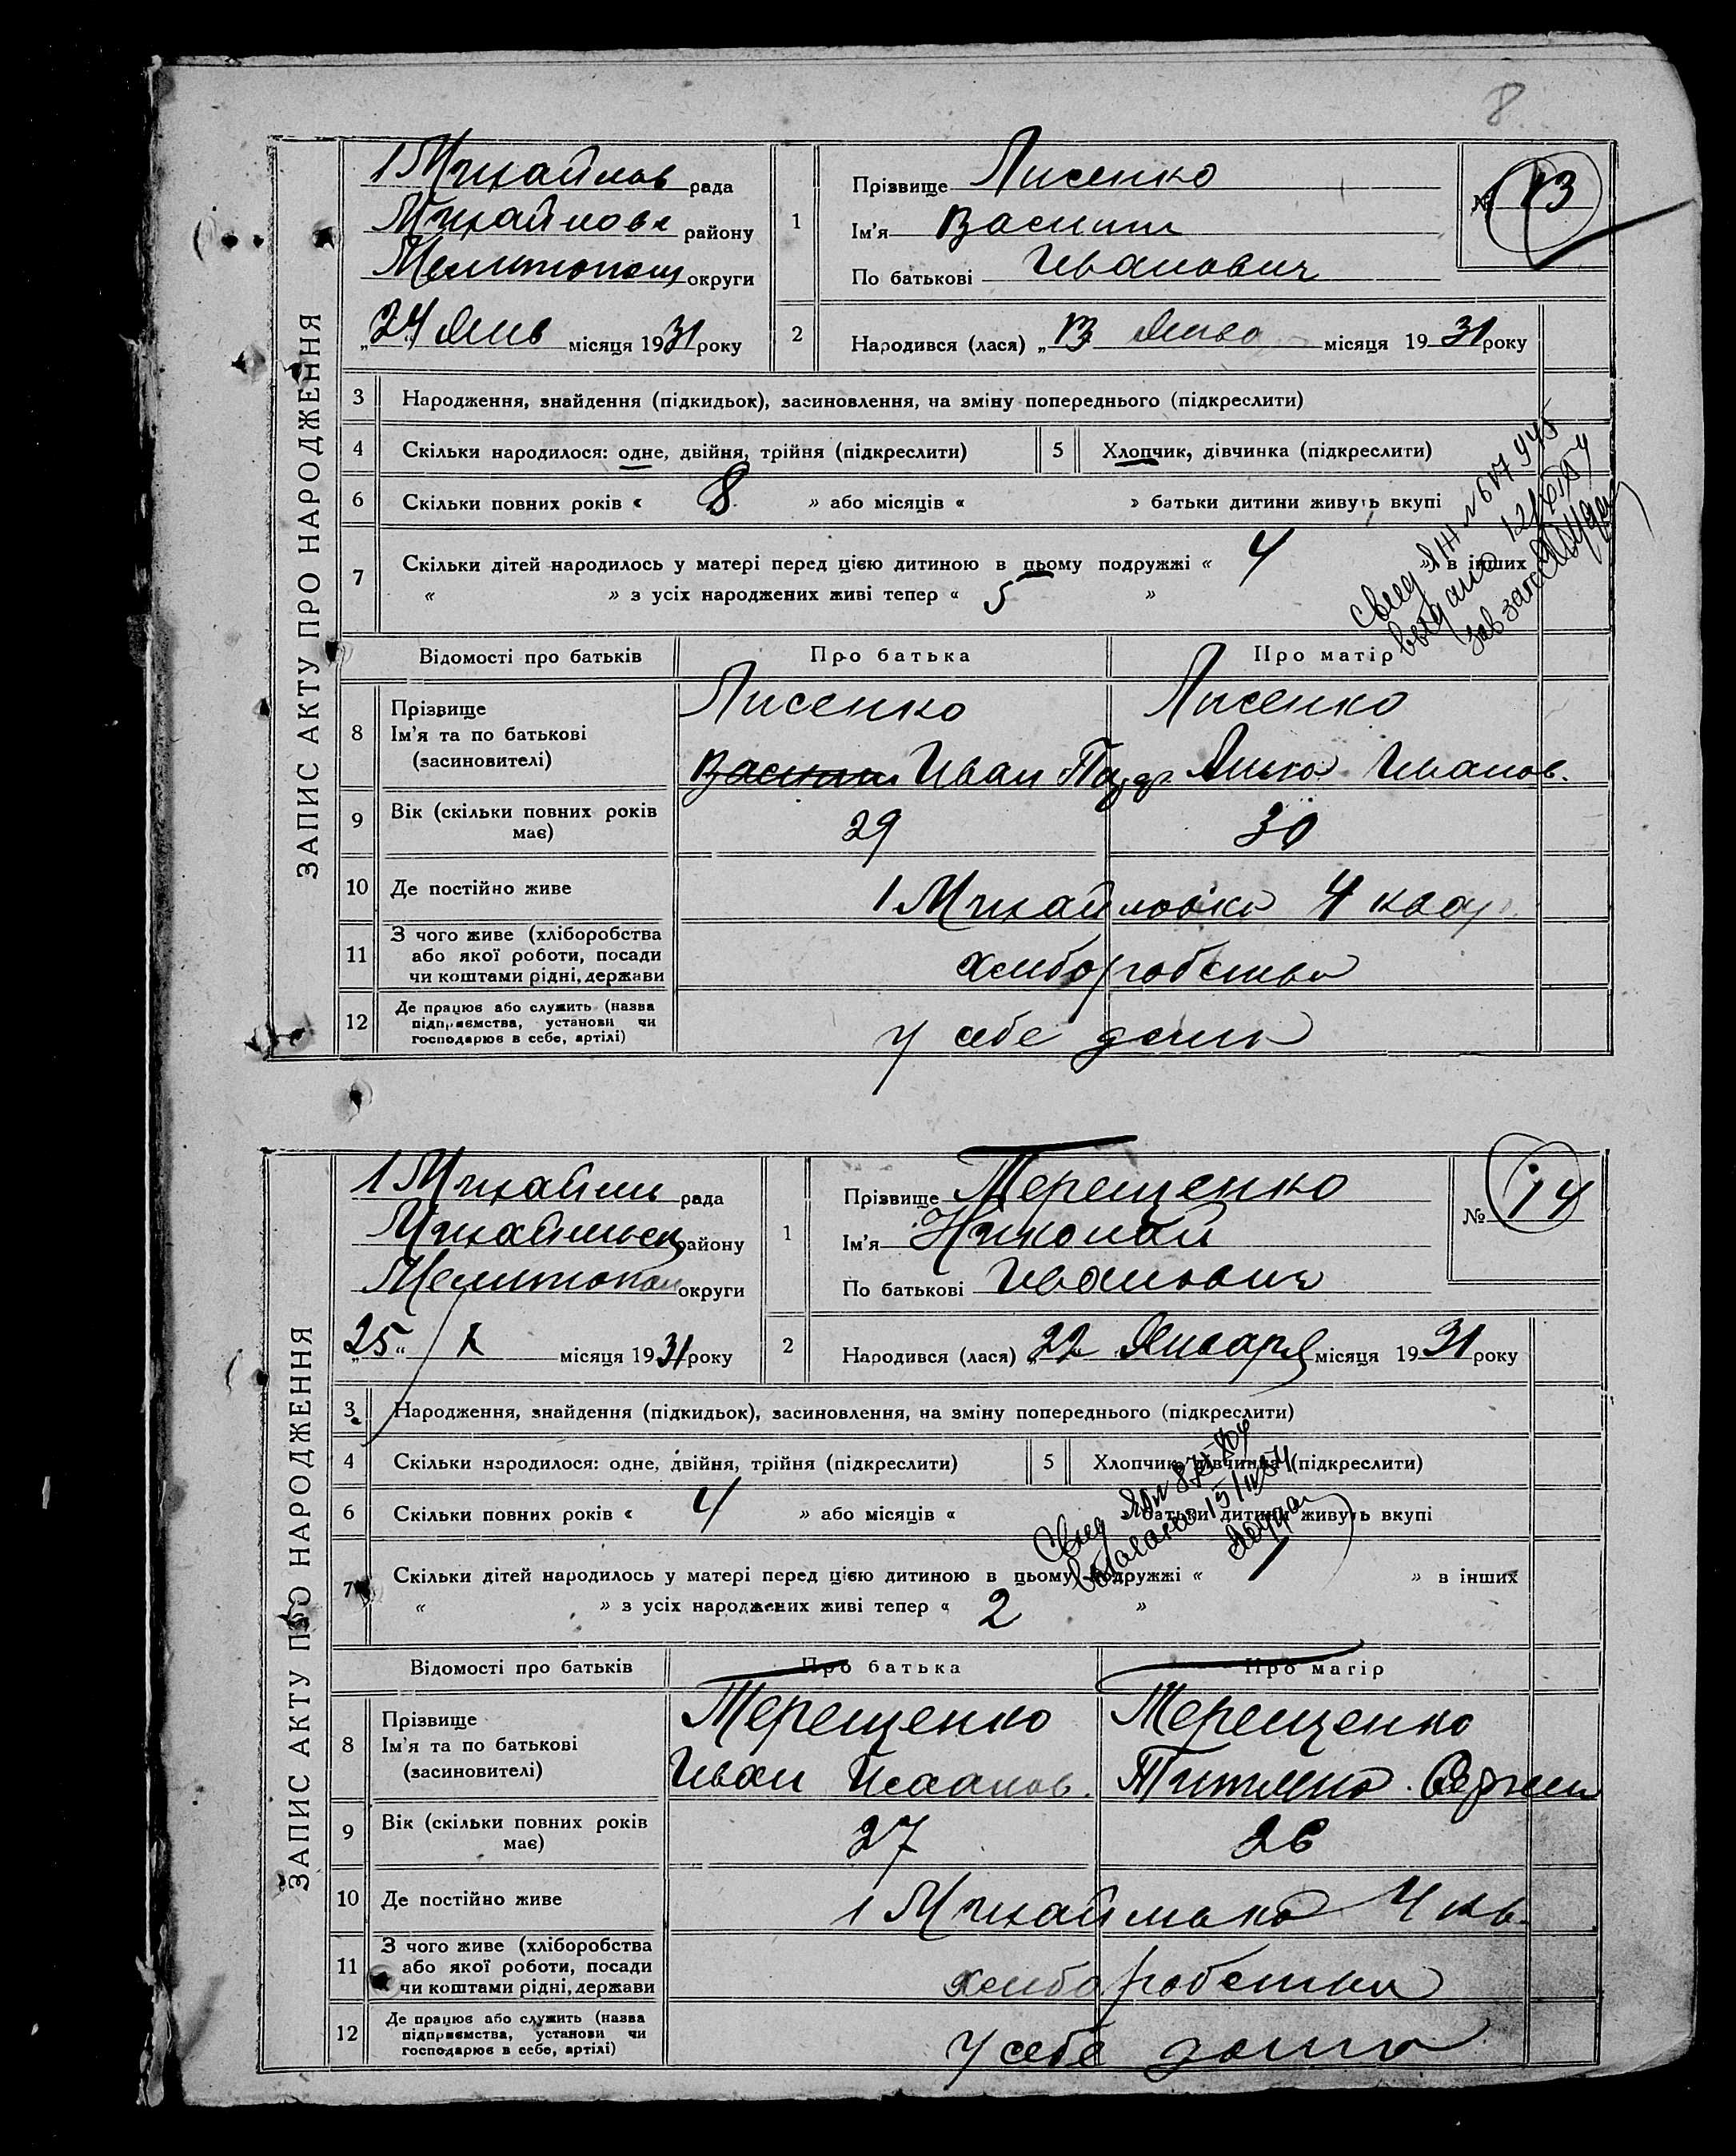 8
ЗАПИС АКТУ ПРО НАРОДЖЕННЯ
1 Михайлов рада
района
Михайловс району
Мелитопол округи
„24“ Янв місяця 1931 року
1
Прізвище Лисенко
Ім'я Василий
По батькові Иванович
№ 13
2
Народився (лася) „13 Янва місяця 1931 року
3 Народження, знайдення (підкидьок), засиновлення, на зміну попереднього (підкреслити)
4 Скільки народилося: одне, двійня, трійня (підкреслити)
5 Хлопчик, дівчинка (підкреслити)
6 Скільки повних років « 8 » або місяців « » батьки дитини живуть вкупі
7 Скільки дітей народилось у матері перед цією дитиною в цьому подружжі « 4 » в інших
« » з усіх народжених живі тепер « 5 »
Свид ЯЖ № 607945
выдано 12/
зав загс
Відомості про батьків Про батька Про матір
8 Прізвище
Ім'я та по батькові
(засиновителі)
Лисенко Лисенко
Василий Иван Анна Иванов.
9 Вік (скільки повних років
має)
29 30
10 Де постійно живе 1 Михайловка 4 квар
11 З чого живе (хліборобства
або якої роботи, посади
чи коштами рідні, держави
хлиборобства
12 Де працює або служить (назва
підприємства, установи чи
господарює в себе, артілі)
у себе дома
ЗАПИС АКТУ ПРО НАРОДЖЕННЯ
1 Михайлов рада
Михайловск району
Мелитопол округи
„25“ / 1 місяця 1931 року
1
Прізвище Терещенко
Ім'я Николай
По батькові Иванович
№ 14
2
Народився (лася) „22 Января місяця 1931 року
3 Народження, знайдення (підкидьок), засиновлення, на зміну попереднього (підкреслити)
4 Скільки народилося: одне, двійня, трійня (підкреслити)
5 Хлопчик, дівчинка (підкреслити)
6 Скільки повних років « 4 » або місяців « » батьки дитини живуть вкупі
7 Скільки дітей народилось у матері перед цією дитиною в цьому подружжі « 1 » в інших
« » з усіх народжених живі тепер « 2 »
Свид
выдано 15/II 54
Відомості про батьків Про батька Про матір
8 Прізвище
Ім'я та по батькові
(засиновителі)
Терещенко Терещенко
Иван Исааков. Сергеев
9 Вік (скільки повних років
має)
27 26
10 Де постійно живе 1 Михайловка 4 кв.
11 З чого живе (хліборобства
або якої роботи, посади
чи коштами рідні, держави
хлиборобства
12 Де працює або служить (назва
підприємства, установи чи
господарює в себе, артілі)
у себе дома